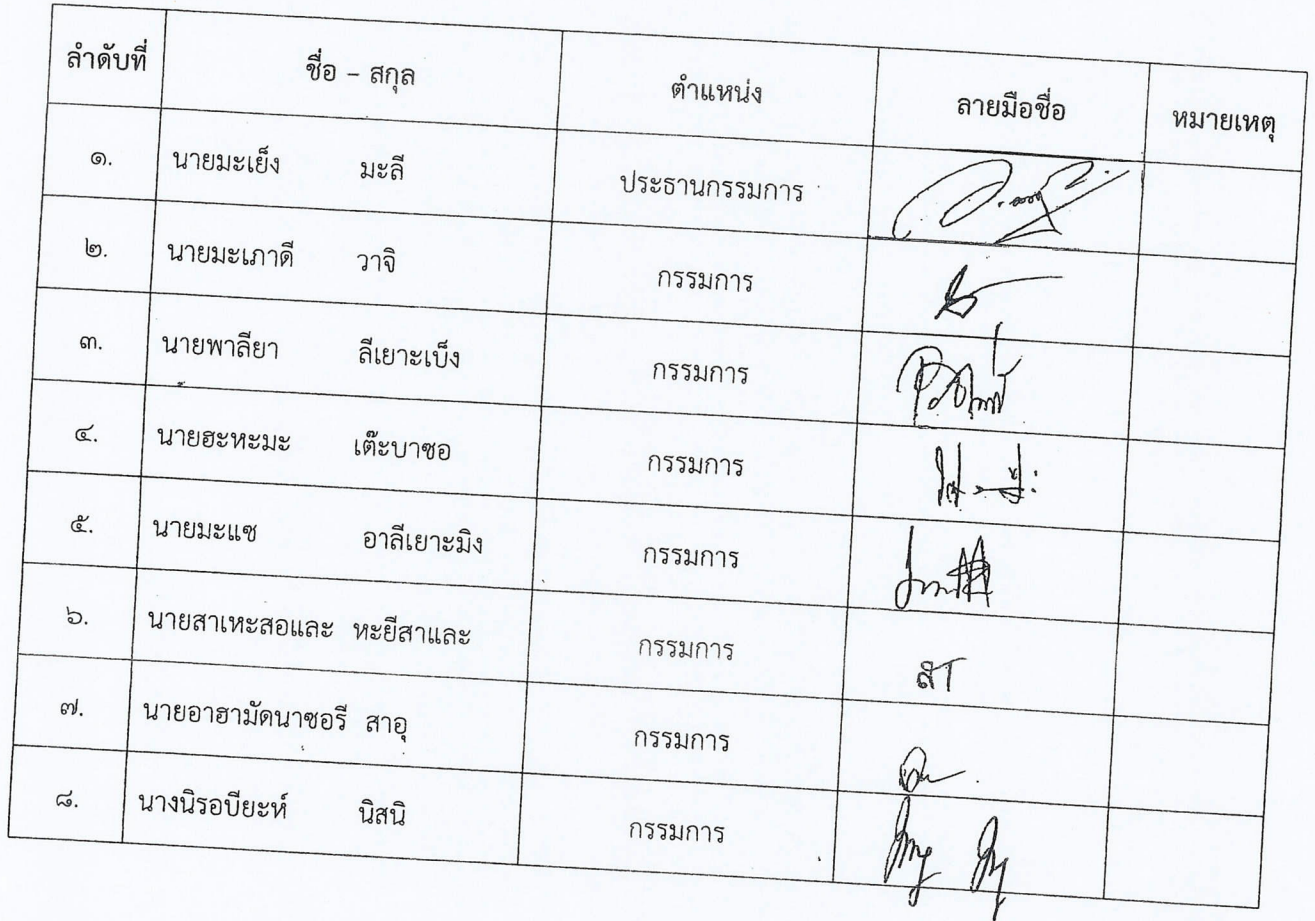 ลำดับที่ ชื่อ – สกุล ตำแหน่ง ลายมือชื่อ หมายเหตุ
๑. นายมะเย็ง มะลี ประธานกรรมการ
๒. นายมะเภาดี วาจิ กรรมการ
๓. นายพาลียา ลีเยาะเบ็ง กรรมการ
๔. นายฮะหะมะ เต๊ะบาซอ กรรมการ
๕. นายมะแซ อาลีเยาะมิง กรรมการ
๖. นายสาเหะสอและ หะยีสาและ กรรมการ
๗. นายอาฮามัดนาซอรี สาอุ กรรมการ
๘. นางนิรอบียะห์ นิสนิ กรรมการ